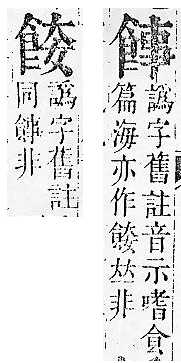 譌字舊註音示嗜食
篇海亦作𠀤非
譌字舊註
同非